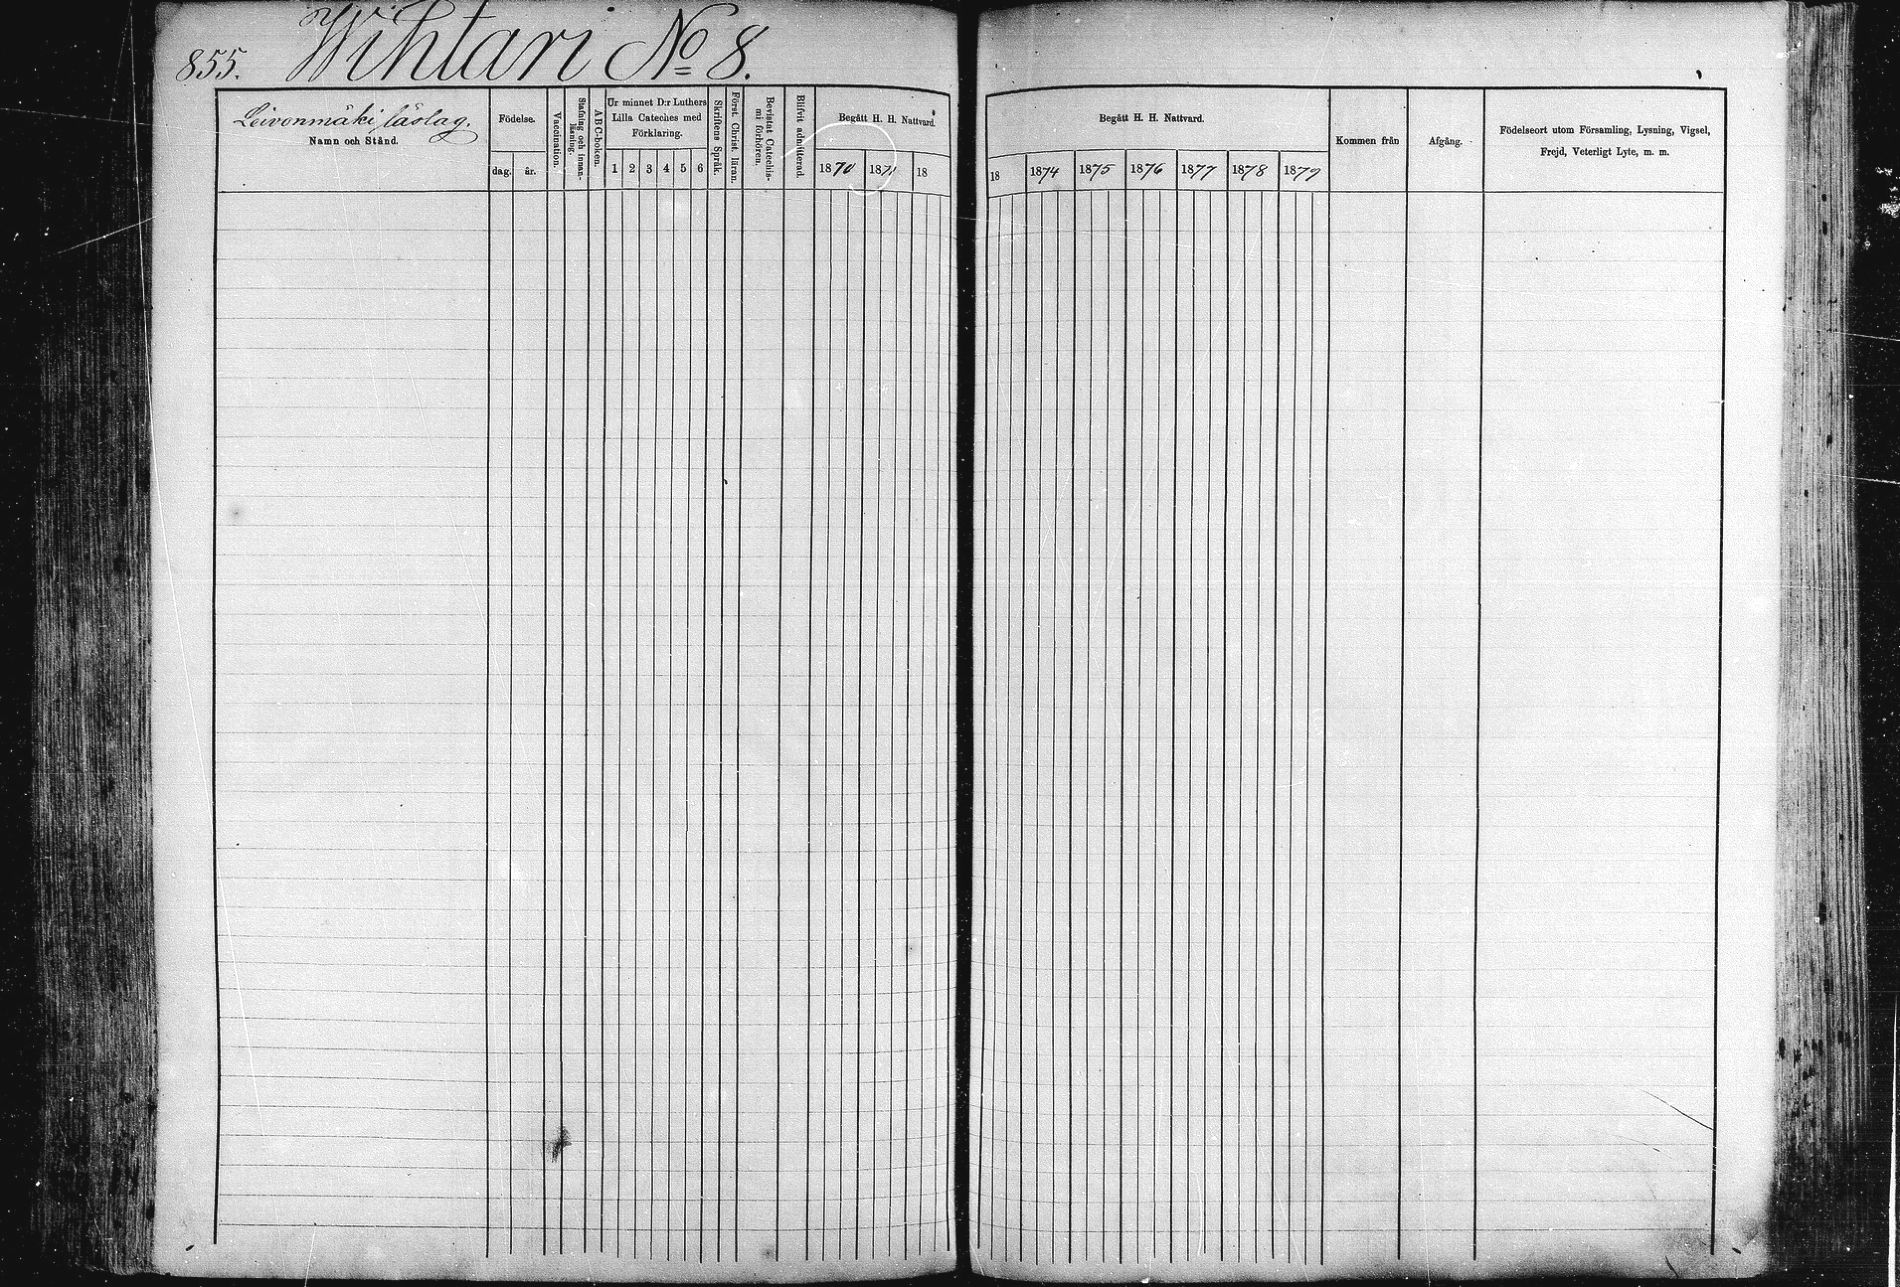 855. Wihtari No 8.
Leivonmäki läslag.
Namn och Stånd.
Födelse.
dag. år.
Vaccination.
Stafning och innan-
läsning.
ABC-boken.
Ur minnet D:r Luthers
Lilla Cateches med
Förklaring.
1 2 3 4 5 6
Skriftens Språk.
Först. Christ. läran.
Bevistat Catechis-
mi förhören.
Blifvit admitterad.
Begått H. H. Nattvard.
1870 1871 18
Begått H. H. Nattvard.
18 1874 1875 1876 1877 1878 1879
Kommen från
Afgång.
Födelseort utom Församling, Lysning, Vigsel,
Frejd, Veterligt Lyte, m. m.